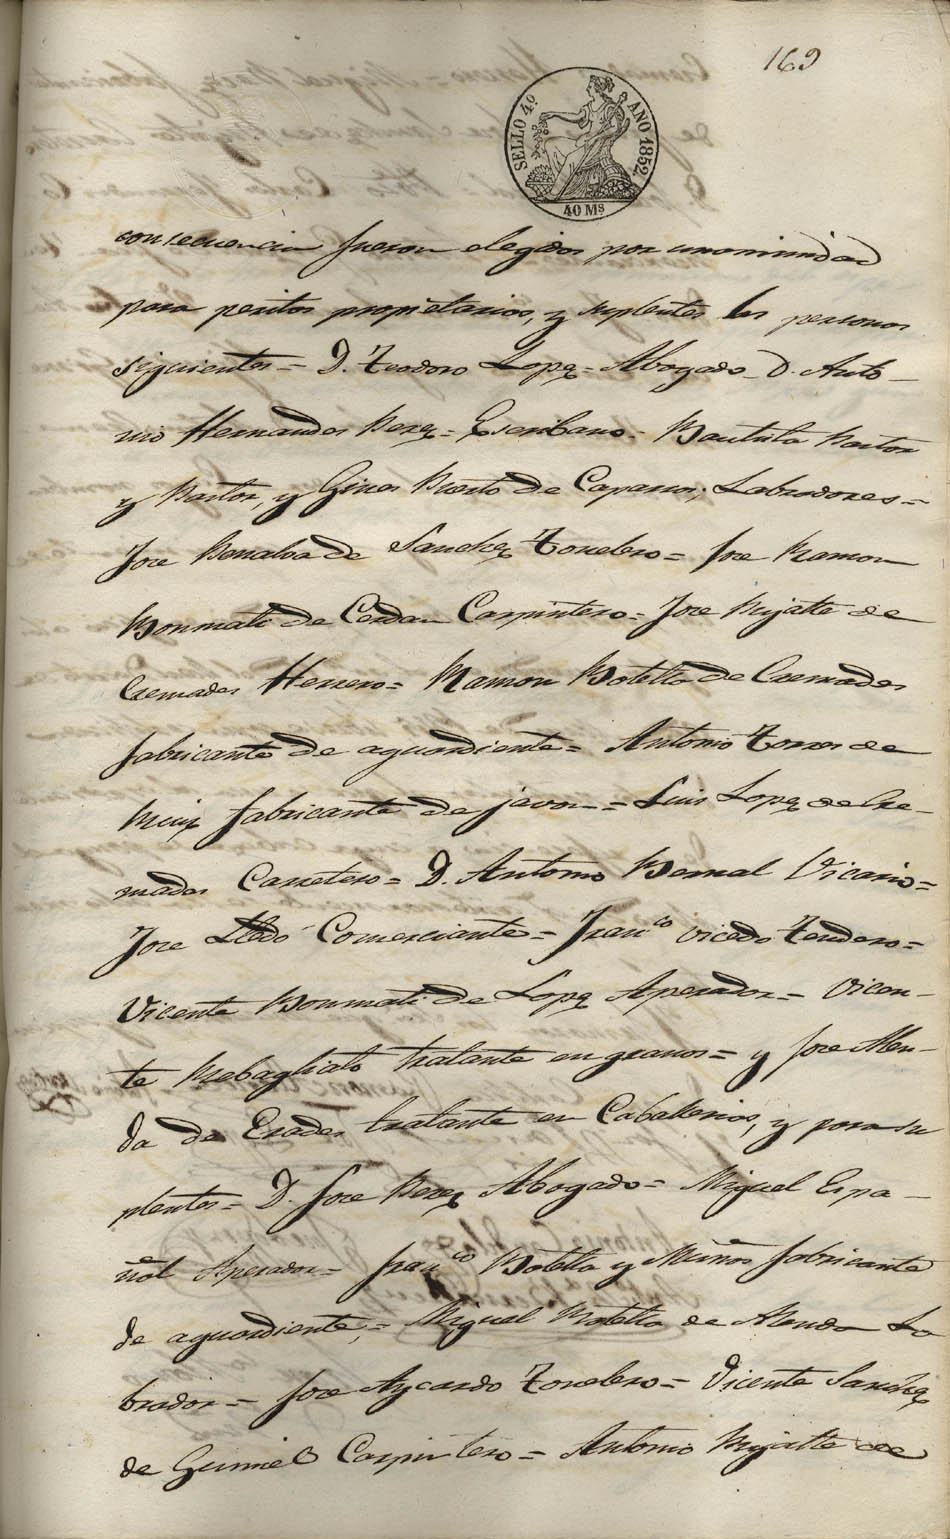 169
SELLO 4º AÑO 1852.
40 Ms
consecuencia fueron elegidos por unanimidad
para peritos propietarios, y suplentes las personas
siguientes = D. Teodoro Lopez = Abogado D. Anto-
nio Hernandes Perez = Escribano = Bautista Pastor
y Pastor, y Gines Puerto de Caparros, Labradores =
Jose Benalva de Sanchez Tonelero = Jose Ramon
Bonmati de Cerdan Carpintero = Jose Mijalte de
Cremades Herrero = Ramon Botella de Cremades
fabricante de aguardiente = Antonio Torres de
Muiz fabricante de javon = Luis Lopez de Cre-
mades Carretero = D. Antonio Bernal Vicario =
Jose Lledó Comerciante = Franco Vicedo Tendero =
Vicente Bonmati de Lopez Aperador = Vicen-
te Rebagliato tratante en granos = y Jose Alen-
da de Erades tratante en Caballerias, y para su
plentes = D. Jose Perez Abogado = Miguel Espa-
ñol Aperador = Franco Botella y Miñana fabricante
de aguardiente, = Miguel Botella de Alenda La
brador = Jose Aycardo Tonelero = Vicente Sanchez
de Gumiel Carpintero = Antonio Mijalte de